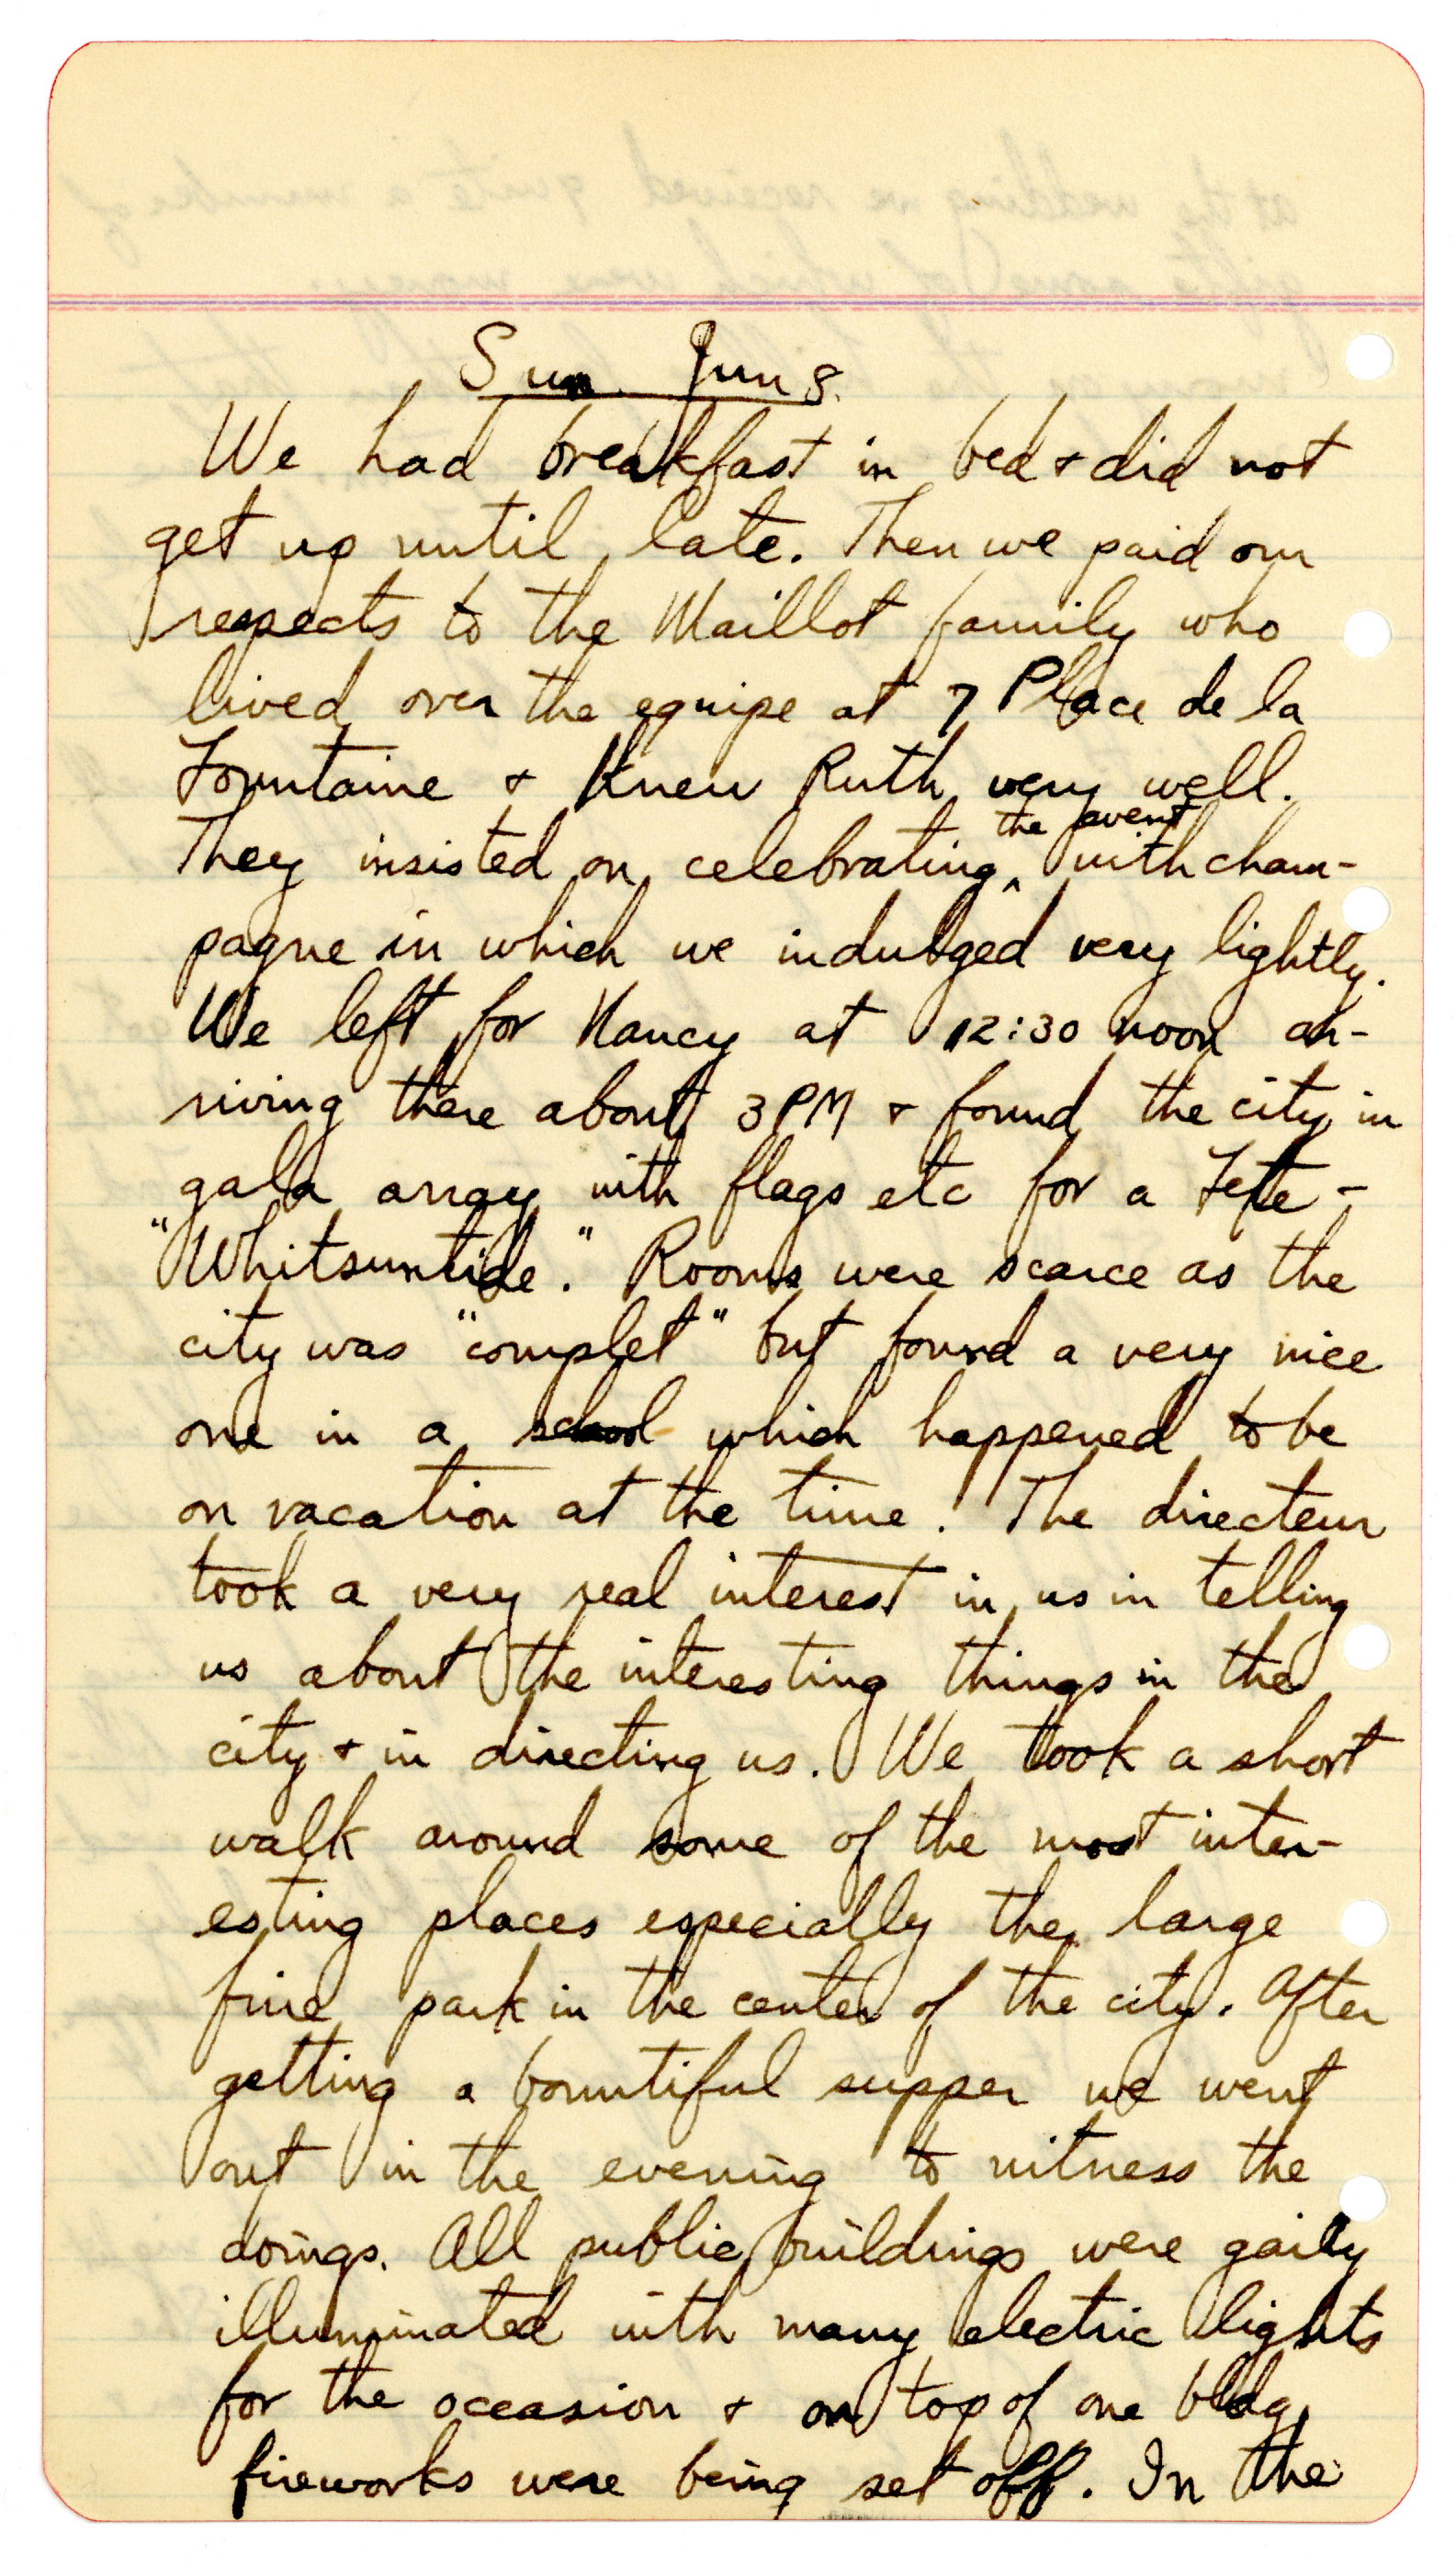 Sun. Jun 8.
We had breakfast in bed + did not
get up until late. Then we paid our
respects to the Maillot family who
lived over the equipe at 7 Place de la
Fountaine + knew Ruth very well.
They insisted on celebrating ^the event with cham-
pagne in which we indulged very lightly.
We left for Nancy at 12:30 noon ar-
riving there about 3 PM + found the city in
gala array with flags etc for a Fete -
"Whitsuntide." Rooms were scarce as the
city was "complet" but found a very nice
one in a school which happened to be
on vacation at the time. The directeur
took a very real interest in us in telling
us about the interesting things in the
city + in directing us. We took a short
walk around some of the most inter-
esting places especially the large
fine park in the center of the city. After
getting a bountiful supper we went
out in the evening to witness the
doings. All public buildings were gaily
illuminated with many electric lights
for the occasion + on top of one bldg
fireworks were being set off. In the